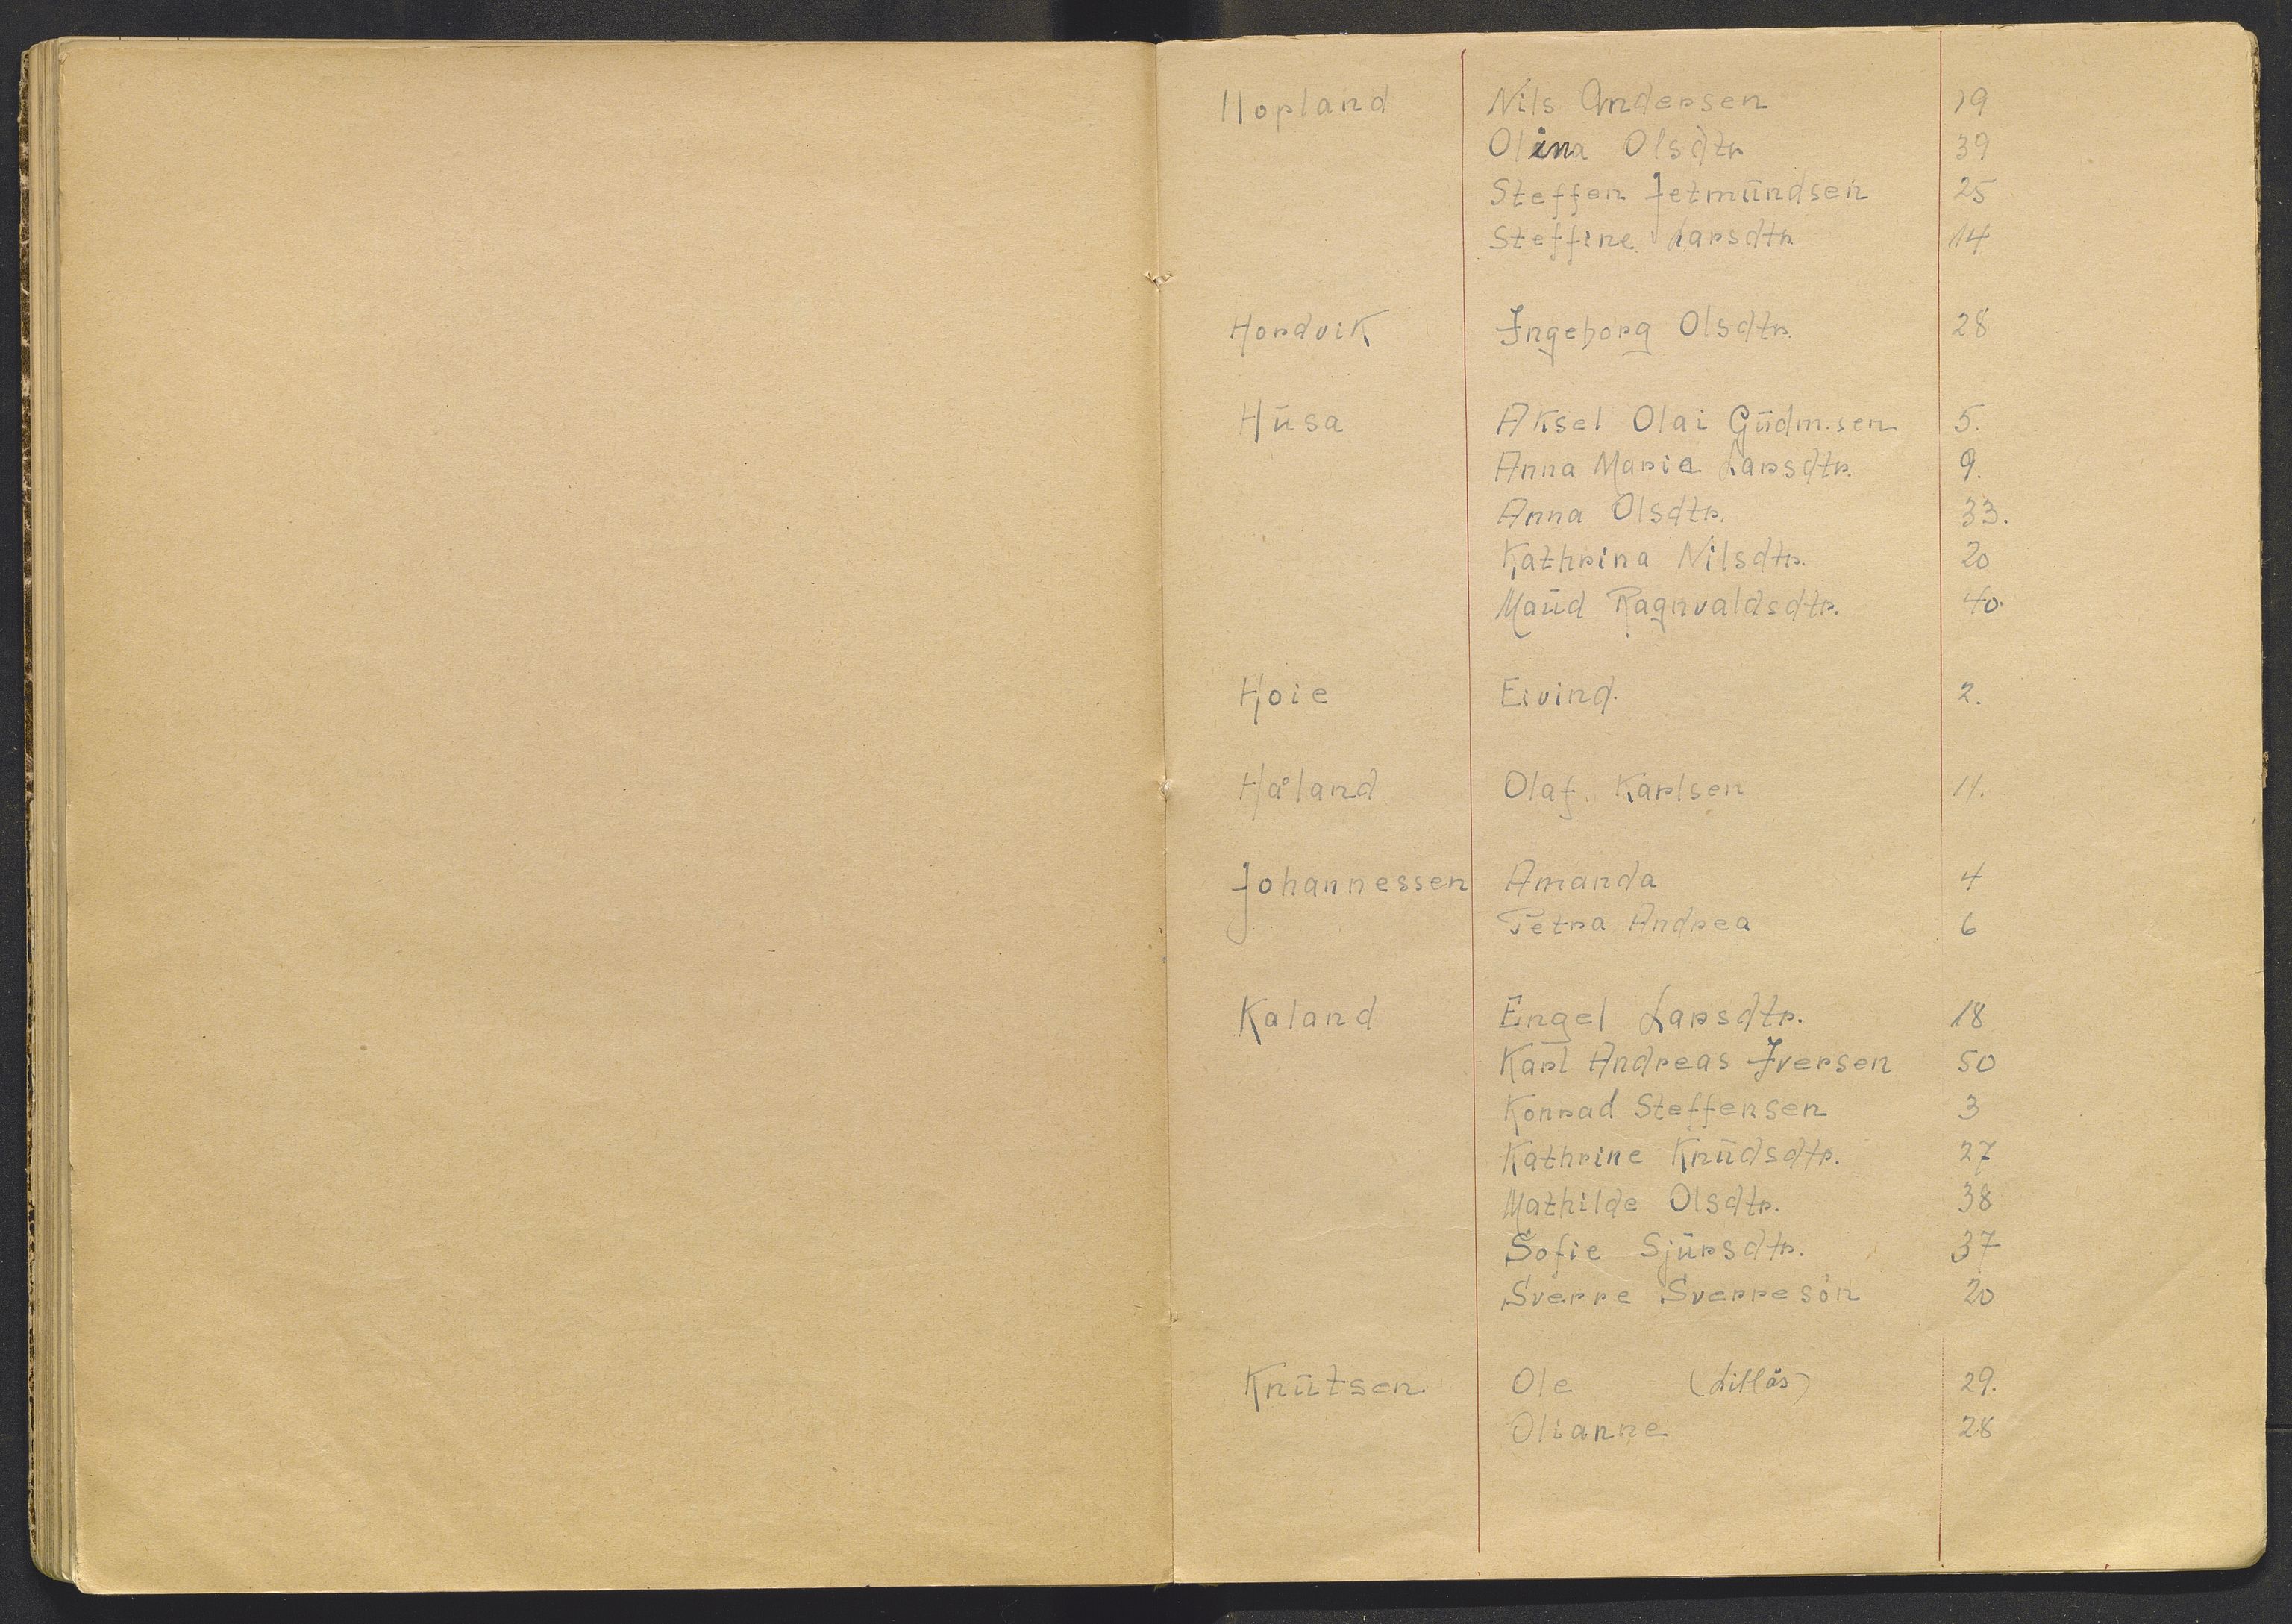 Hopland Nils Andersen 19
Olina Olsdtr 39
Steffen Jetmŭndsen 25
Steffine Larsdtr 14
Hordvik Ingeborg Olsdtr. 28
Hŭsa Aksel Olai Gŭdm.sen 5.
Anna Marie Larsdtr. 9.
Anna Olsdtr. 33.
Kathrina Nilsdtr. 20
Maŭd Ragnvaldsdtr. 40.
Hoie Eivind. 2.
Håland Olaf Karlsen 11.
Johannessen Amanda 4
Petra Andrea 6
Kaland Engel Larsdtr. 18
Karl Andreas Iversen 50
Konrad Steffensen 3
Kathrine Knŭdsdtr. 27
Mathilde Olsdtr. 38
Sofie Sjŭrsdtr. 37
Sverre Sverresön 20
Knŭtsen Ole (Litlås) 29.
Olianne 28